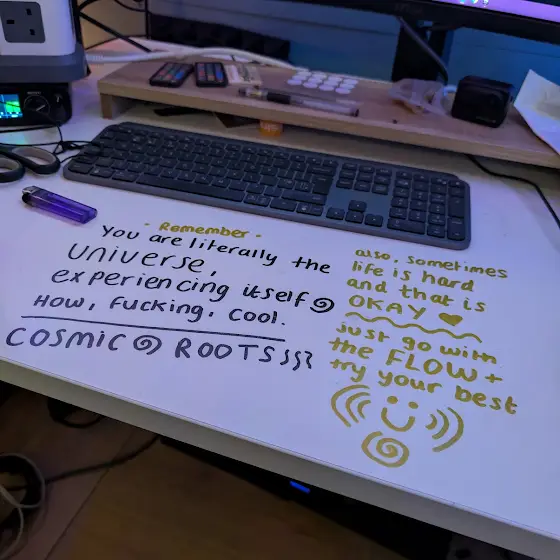 - Remember -
You are literally the
universe,
experiencing itself
HOW, fucking, cool.
COSMIC ROOTS
also, sometimes
life is hard
and that is
OKAY ♥
just go with
the FLOW +
try your best